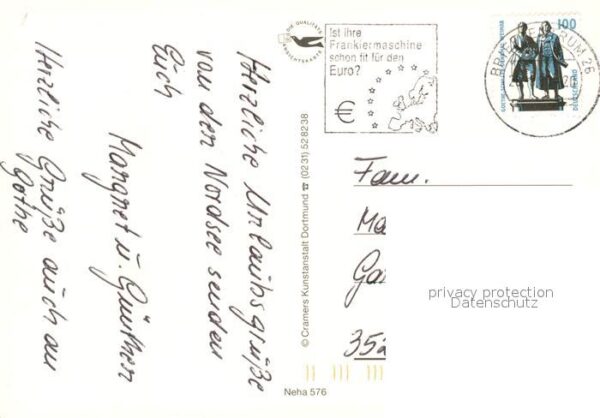 Herzliche Urlaubsgrüße
von der Nordsee senden
Euch
Margret u. Günther
Herzliche Grüße auch an
Gothe
DIE QUALITÄTS
ANSICHTSKARTE
© Cramers Kunstanstalt Dortmund ☎ (0231) 528238
Neha 576
Ist ihre
Frankiermaschine
schon fit für den
Euro?
€
100
GOETHE-SCHILLER-DENKMAL WEIMAR
DEUTSCHLAND
BRIEFZENTRUM 26
Fam.
Ma
Ga
35
privacy protection
Datenschutz